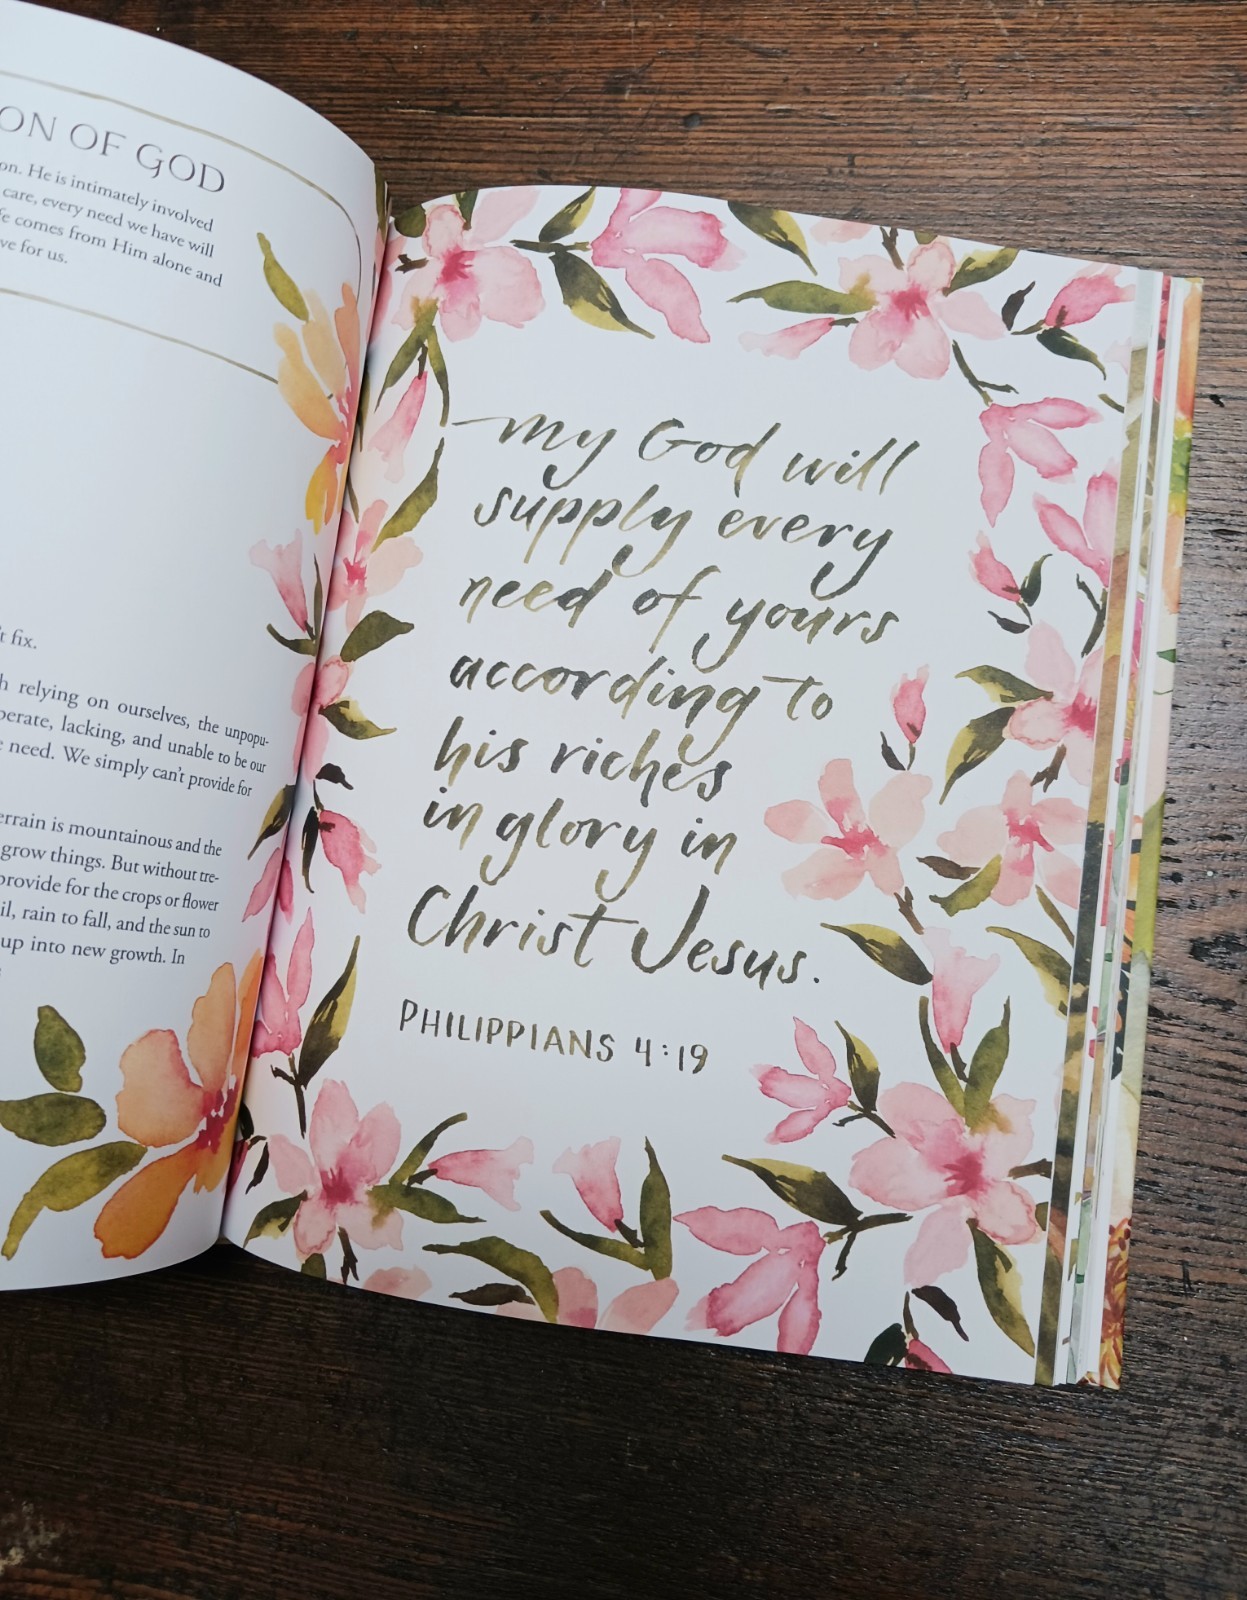 ON OF GOD
on. He is intimately involved
care, every need we have will
fe comes from Him alone and
ve for us.
't fix.
h relying on ourselves, the unpopu-
perate, lacking, and unable to be our
e need. We simply can't provide for
errain is mountainous and the
grow things. But without tre-
provide for the crops or flower
il, rain to fall, and the sun to
up into new growth. In
My God will
supply every
need of yours
according to
his riches
in glory in
Christ Jesus.
PHILIPPIANS 4:19